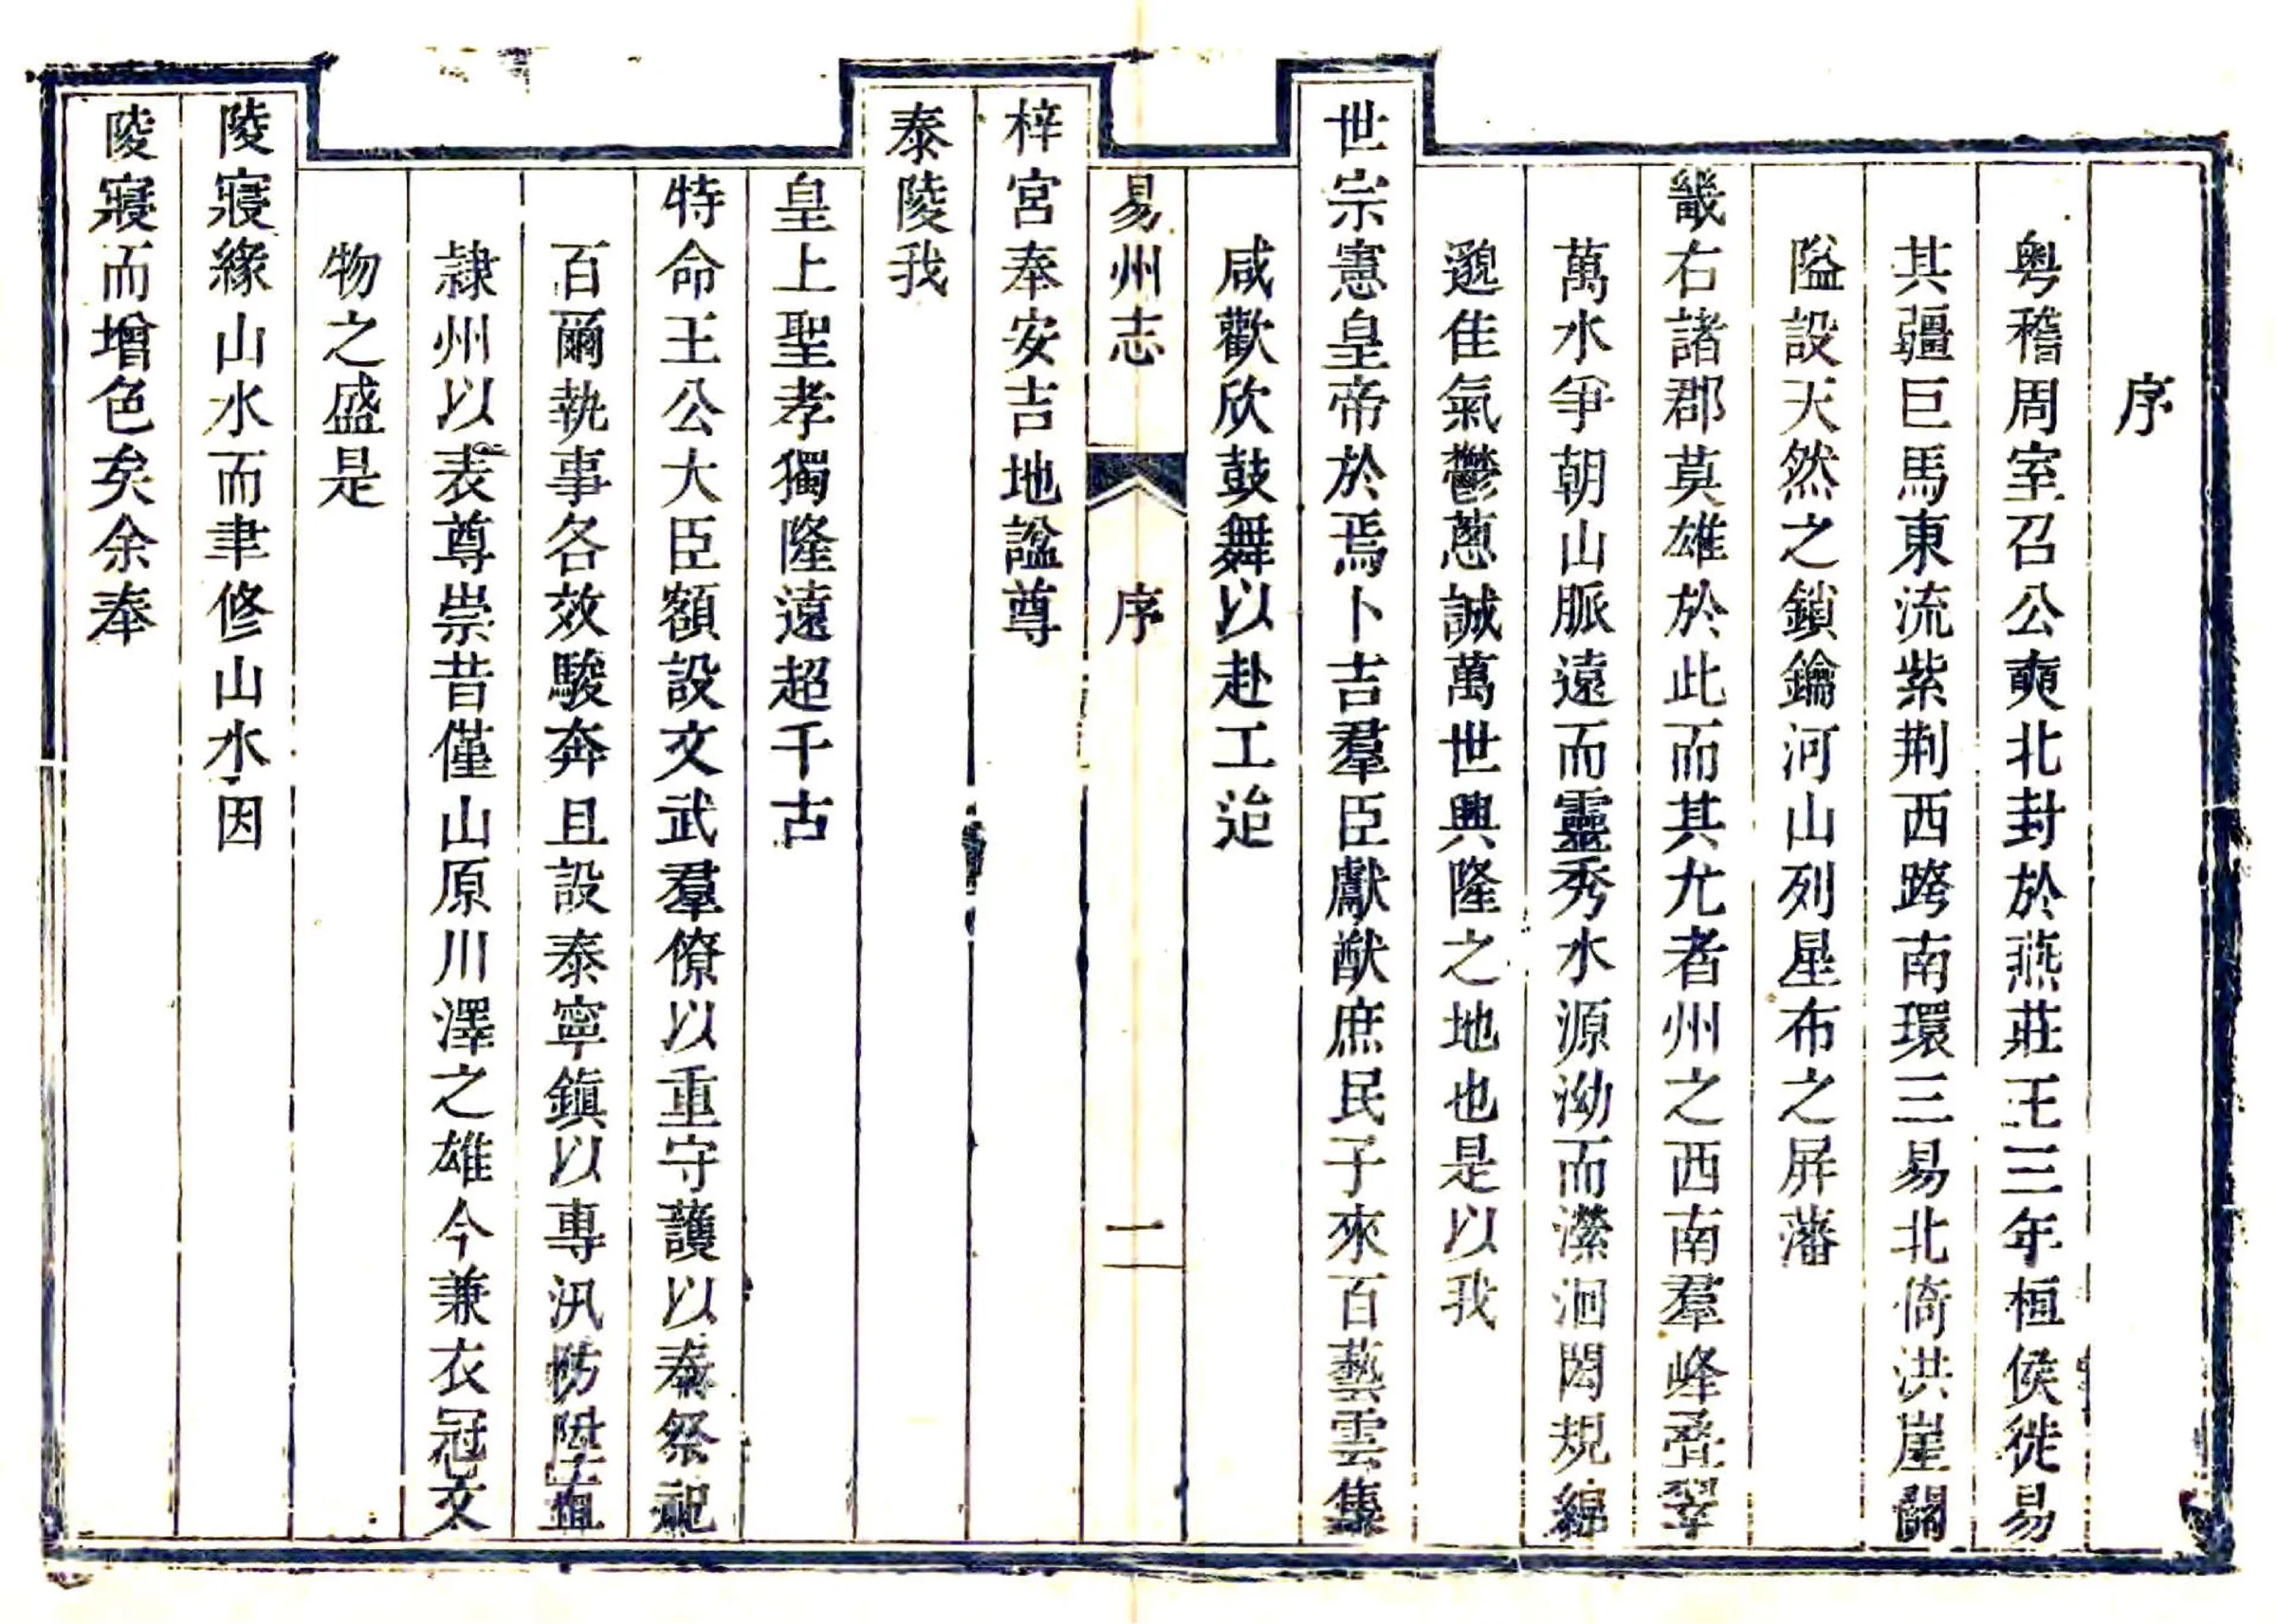 序
粤稽周室召公奭北封於燕莊王三年桓侯徙易
其疆巨馬東流紫荆西跨南環三易北倚洪崖關
隘設天然之鎖鑰河山列星布之屏藩
畿右諸郡莫雄於此而其尤者州之西南羣峰疊翠
萬水爭朝山脈遠而靈秀水源泑而瀠洄閎規綿
邈佳氣鬱蔥誠萬世興隆之地也是以我
世宗憲皇帝於焉卜吉羣臣獻猷庶民子來百藝雲集
咸歡欣鼓舞以赴工迨
易州志 序 一
梓宮奉安吉地諡尊
泰陵我
皇上聖孝獨隆遠超千古
特命王公大臣額設文武羣僚以重守護以奉祭祀
百爾執事各效駿奔且設泰寧鎮以專汛防陞直
隷州以表尊崇昔僅山原川澤之雄今兼衣冠文
物之盛是
陵寢緣山水而聿修山水因
陵寢而增色矣余奉